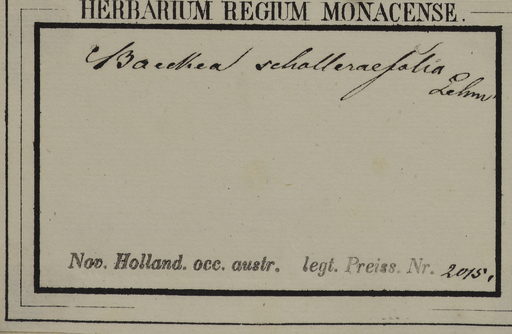 HERBARIUM REGIUM MONACENSE.
Baeckea scholleraefolia
Lehm
Nov. Holland. occ. austr. legt. Preiss. Nr. 2015.